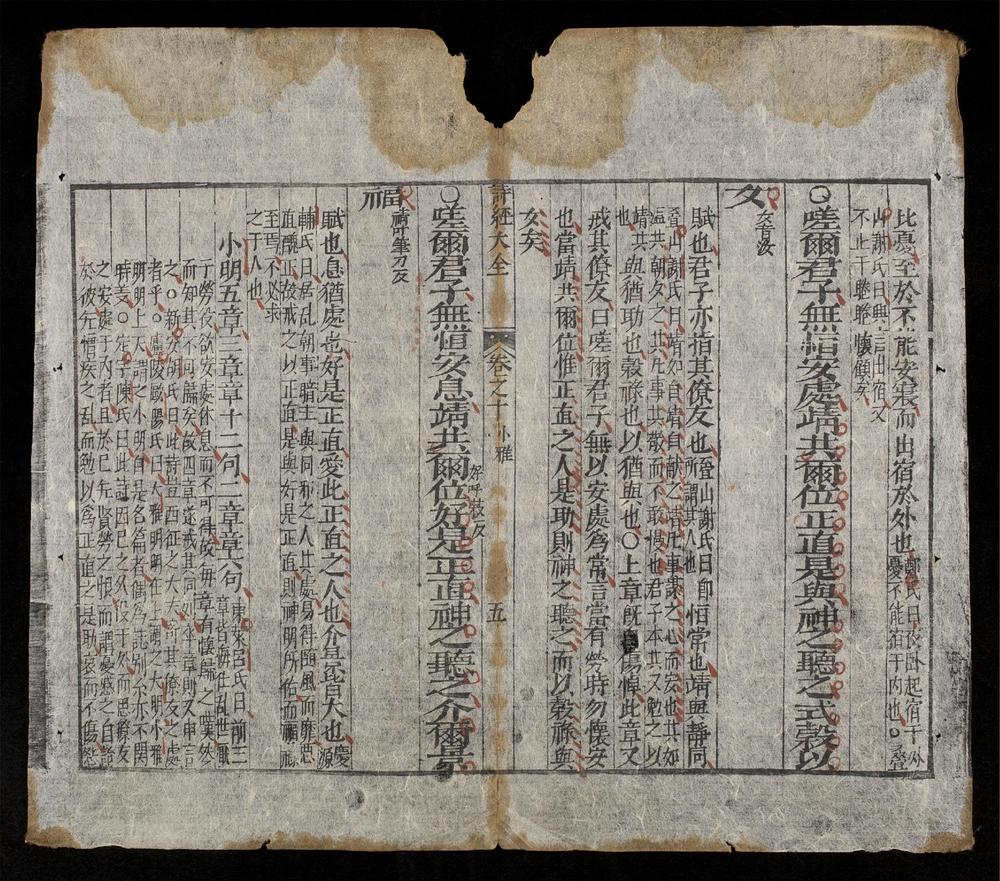 比憂至於不能安寢而出宿於外也鄭氏曰夜卧起宿于外憂不能宿于內也○疊
山謝氏曰興言出宿又
不止于睠睠懷顧矣
○嗟爾君子無恒安處靖共爾位正直是與神之聽之式穀以
女音汝
賦也君子亦指其僚友也疊山謝氏曰即所謂其人也恒常也靖與靜同
疊山謝氏曰靖如自靖自獻之靖凡事謀之心而安也共如
溫共朝夕之共凡事共敬而不敢慢也君子本其又勉之以
靖共也與猶助也穀祿也以猶與也○上章旣自傷悼此章又
戒其僚友曰嗟爾君子無以安處爲常言當有勞時勿懷安
也當靖共爾位惟正直之人是助則神之聽之而以穀祿與
女矣
詩經大全 卷之十三 小雅 五
○嗟爾君子無恒安息靖共爾位好呼報反是正直神之聽之介爾景
福叶筆力反
賦也息猶處也好是正直愛此正直之人也介景皆大也慶源
輔氏曰居乱朝事暗主與同邪之人共處易得隨風而靡忠
直醜正故戒之以正直是與好是正直則神明所佑而福祿
至焉不必求
之于人也
小明五章三章章十二句二章章六句東萊呂氏曰前三章皆悔仕乱世厭
于勞役欲安處休息而不可得故每章有懷歸之嘆然
而知其不可歸矣故四章遂戒其同列卒章則又申言
之○新安胡氏曰此詩豈西征之大夫可其僚友之處
者乎○廬陵歐陽氏曰大雅明明在上謂之大明小雅
明明上天謂之小明自是名篇者偶爲誌別尔亦不關
時義○定宇陳氏曰此詩因己之久役于外而思僚友
之安處于內者且於己先賢勞之恨而謂憂慼之自詒
於彼先憯疾之乱而勉以爲正直之是助哀而不傷怨